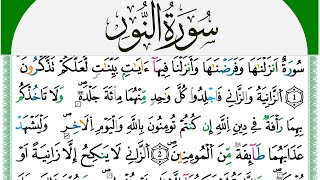 سُورَةُ النُّور
سُورَةٌ اَنْزَلْنٰهَا وَفَرَضْنٰهَا وَاَنْزَلْنَا فِيْهَآ اٰيٰتٍۭ بَيِّنٰتٍ لَّعَلَّكُمْ تَذَكَّرُوْنَ
﴿1﴾ اَلزَّانِيَةُ وَالزَّانِيْ فَاجْلِدُوْا كُلَّ وَاحِدٍ مِّنْهُمَا مِائَةَ جَلْدَةٍ ۪ وَّلَا تَاْخُذْكُمْ
بِهِمَا رَاْفَةٌ فِيْ دِيْنِ اللّٰهِ اِنْ كُنْتُمْ تُؤْمِنُوْنَ بِاللّٰهِ وَالْيَوْمِ الْاٰخِرِ ۚ وَلْيَشْهَدْ
عَذَابَهُمَا طَآئِفَةٌ مِّنَ الْمُؤْمِنِيْنَ ﴿2﴾ اَلزَّانِيْ لَا يَنْكِحُ اِلَّا زَانِيَةً اَوْ